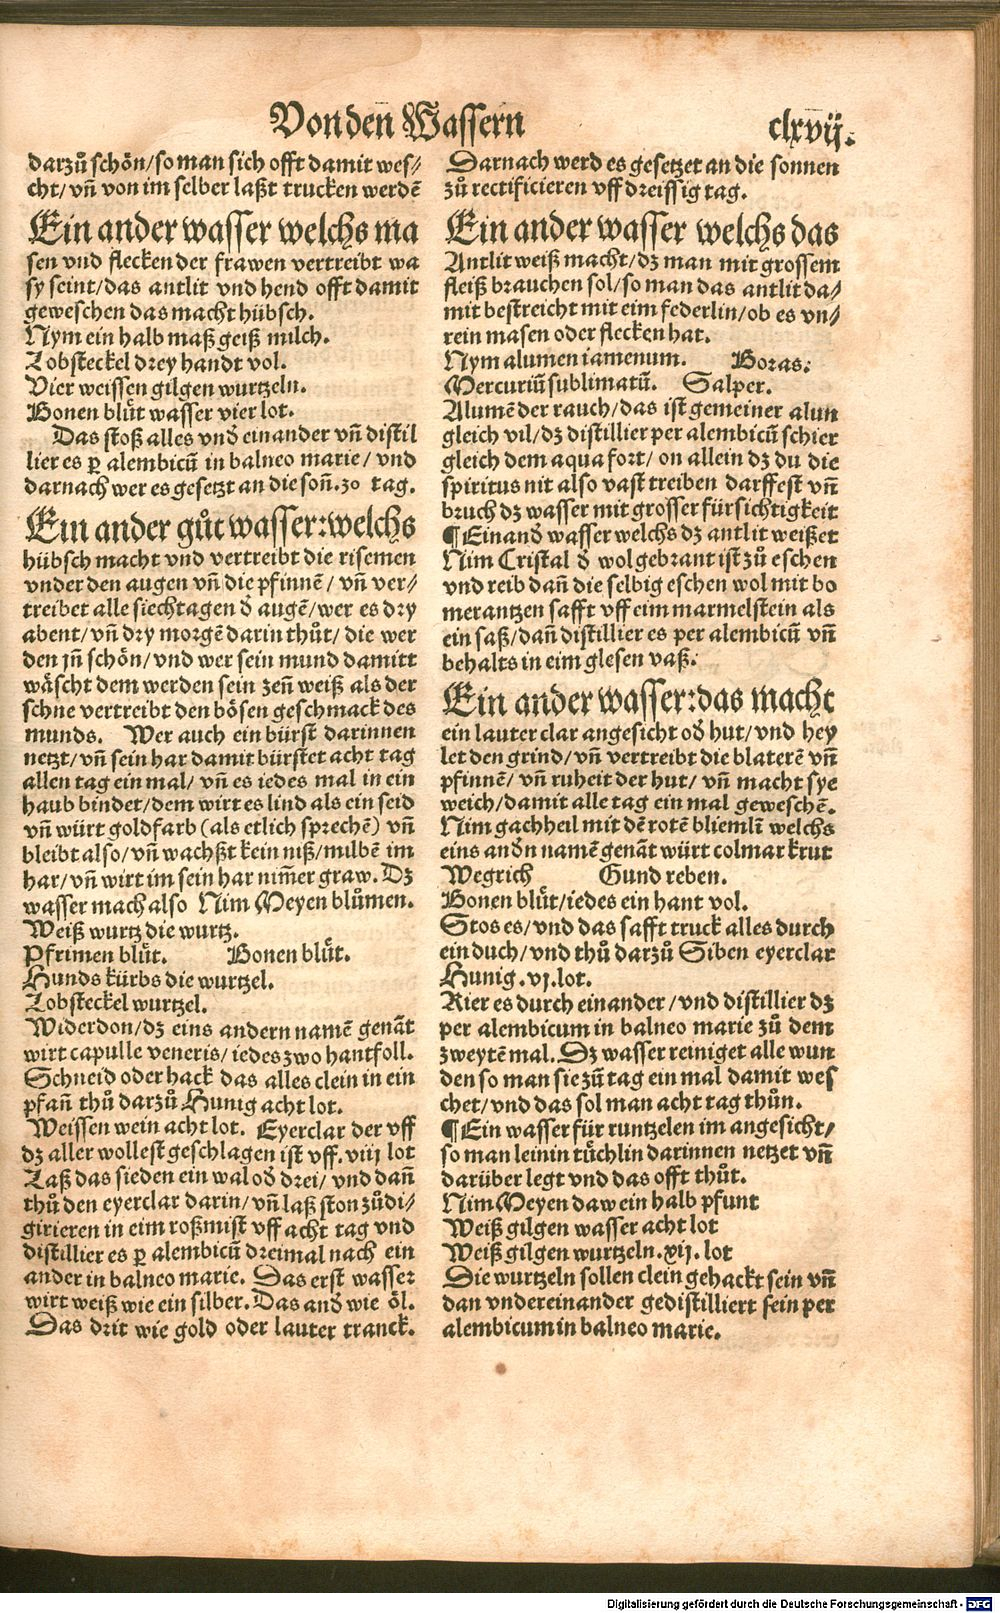 Von denn Wassern
clxvij.
darzů schön/so man sich offt damit wes⸗
cht/vn̄ von im selber laßt trucken werdē
Ein ander wasser welchs ma
sen vnd flecken der frawen vertreibt wa
sy seint/das antlit vnd hend offt damit
geweschen das macht hübsch.
Nym ein halb maß geiß milch.
Lobsteckel drey handt vol.
Vier weissen gilgen wurtzeln.
Bonen blůt wasser vier lot.
Das stoß alles vnd einander vn̄ distil
lier es ꝑ alembicū in balneo marie/vnd
darnach wer es gesetzt an die son̄.30 tag.
Ein ander gůt wasser:welchs
hübsch macht vnd vertreibt die risemen
vnder den augen vn̄ die pfinnē/vn̄ ver⸗
treibet alle siechtagen d̕ augē/wer es dry
abent/vn̄ dry morgē darin thůt/die wer
den jn̄ schön/vnd wer sein mund damitt
wäscht dem werden sein zen̄ weiß als der
schne vertreibt den bösen geschmack des
munds. Wer auch ein bürst darinnen
netzt/vn̄ sein har damit bürstet acht tag
allen tag ein mal/vn̄ es iedes mal in ein
haub bindet/dem wirt es lind als ein seid
vn̄ würt goldfarb (als etlich sprechē) vn̄
bleibt also/vn̄ wachßt kein niß/milbē im
har/vn̄ wirt im sein har nim̄er graw. Dz
wasser mach also Nim Meyen blůmen.
Weiß wurtz die wurtz.
Pfrimen blůt. Bonen blůt.
Hunds kürbs die wurtzel.
Lobsteckel wurtzel.
Widerdon/dz eins andern namē genāt
wirt capulle veneris/iedes zwo hantfoll.
Schneid oder hack das alles clein in ein
pfan̄ thů darzů Hunig acht lot.
Weissen wein acht lot. Eyerclar der vff
dz aller wollest geschlagen ist vff.viij lot
Laß das sieden ein wal od̕ drei/vnd dan̄
thů den eyerclar darin/vn̄ laß ston zů di⸗
girieren in eim roßmist vff acht tag vnd
distillier es ꝑ alembicū dreimal nach ein
ander in balneo marie. Das erst wasser
wirt weiß wie ein silber. Das and̕ wie öl.
Das drit wie gold oder lauter tranck.
Darnach werd es gesetzet an die sonnen
zů rectificieren vff dreissig tag.
Ein ander wasser welchs das
Antlit weiß macht/dz man mit grossem
fleiß brauchen sol/so man das antlit da⸗
mit bestreicht mit eim federlin/ob es vn⸗
rein masen oder flecken hat.
Nym alumen iamenum. Boras.
Mercuriū sublimatū. Salper.
Alumē der rauch/das ist gemeiner alun
gleich vil/dz distillier per alembicū schier
gleich dem aqua fort/on allein dz du die
spiritus nit also vast treiben darffest vn̄
bruch dz wasser mit grosser fürsichtigkeit
¶Ein and̕ wasser welchs dz antlit weißet
Nim Cristal d̕ wol gebrant ist zů eschen
vnd reib dan̄ die selbig eschen wol mit bo
merantzen safft vff eim marmelstein als
ein saß/dan̄ distillier es per alembicū vn̄
behalts in eim glesen vaß.
Ein ander wasser:das macht
ein lauter clar angesicht od̕ hut/vnd hey
let den grind/vn̄ vertreibt die blaterē vn̄
pfinnē/vn̄ ruheit der hut/vn̄ macht sye
weich/damit alle tag ein mal geweschē.
Nim gachheil mit dē rotē bliemlī welchs
eins and̕n namē genāt würt colmar krut
Wegrich Gund reben.
Bonen blůt/iedes ein hant vol.
Stos es/vnd das safft truck alles durch
ein duch/vnd thů darzů Siben eyerclar
Hunig.vj.lot.
Rier es durch einander/vnd distillier dz
per alembicum in balneo marie zů dem
zweytē mal. Dz wasser reiniget alle wun
den so man sie zů tag ein mal damit wes
chet/vnd das sol man acht tag thůn.
¶Ein wasser für runtzelen im angesicht/
so man leinin tüchlin darinnen netzet vn̄
darüber legt vnd das offt thůt.
Nim Meyen daw ein halb pfunt
Weiß gilgen wasser acht lot
Weiß gilgen wurtzeln.xij.lot
Die wurtzeln sollen clein gehackt sein vn̄
dan vndereinander gedistilliert sein per
alembicum in balneo marie.
Digitalisierung gefördert durch die Deutsche Forschungsgemeinschaft - DFG